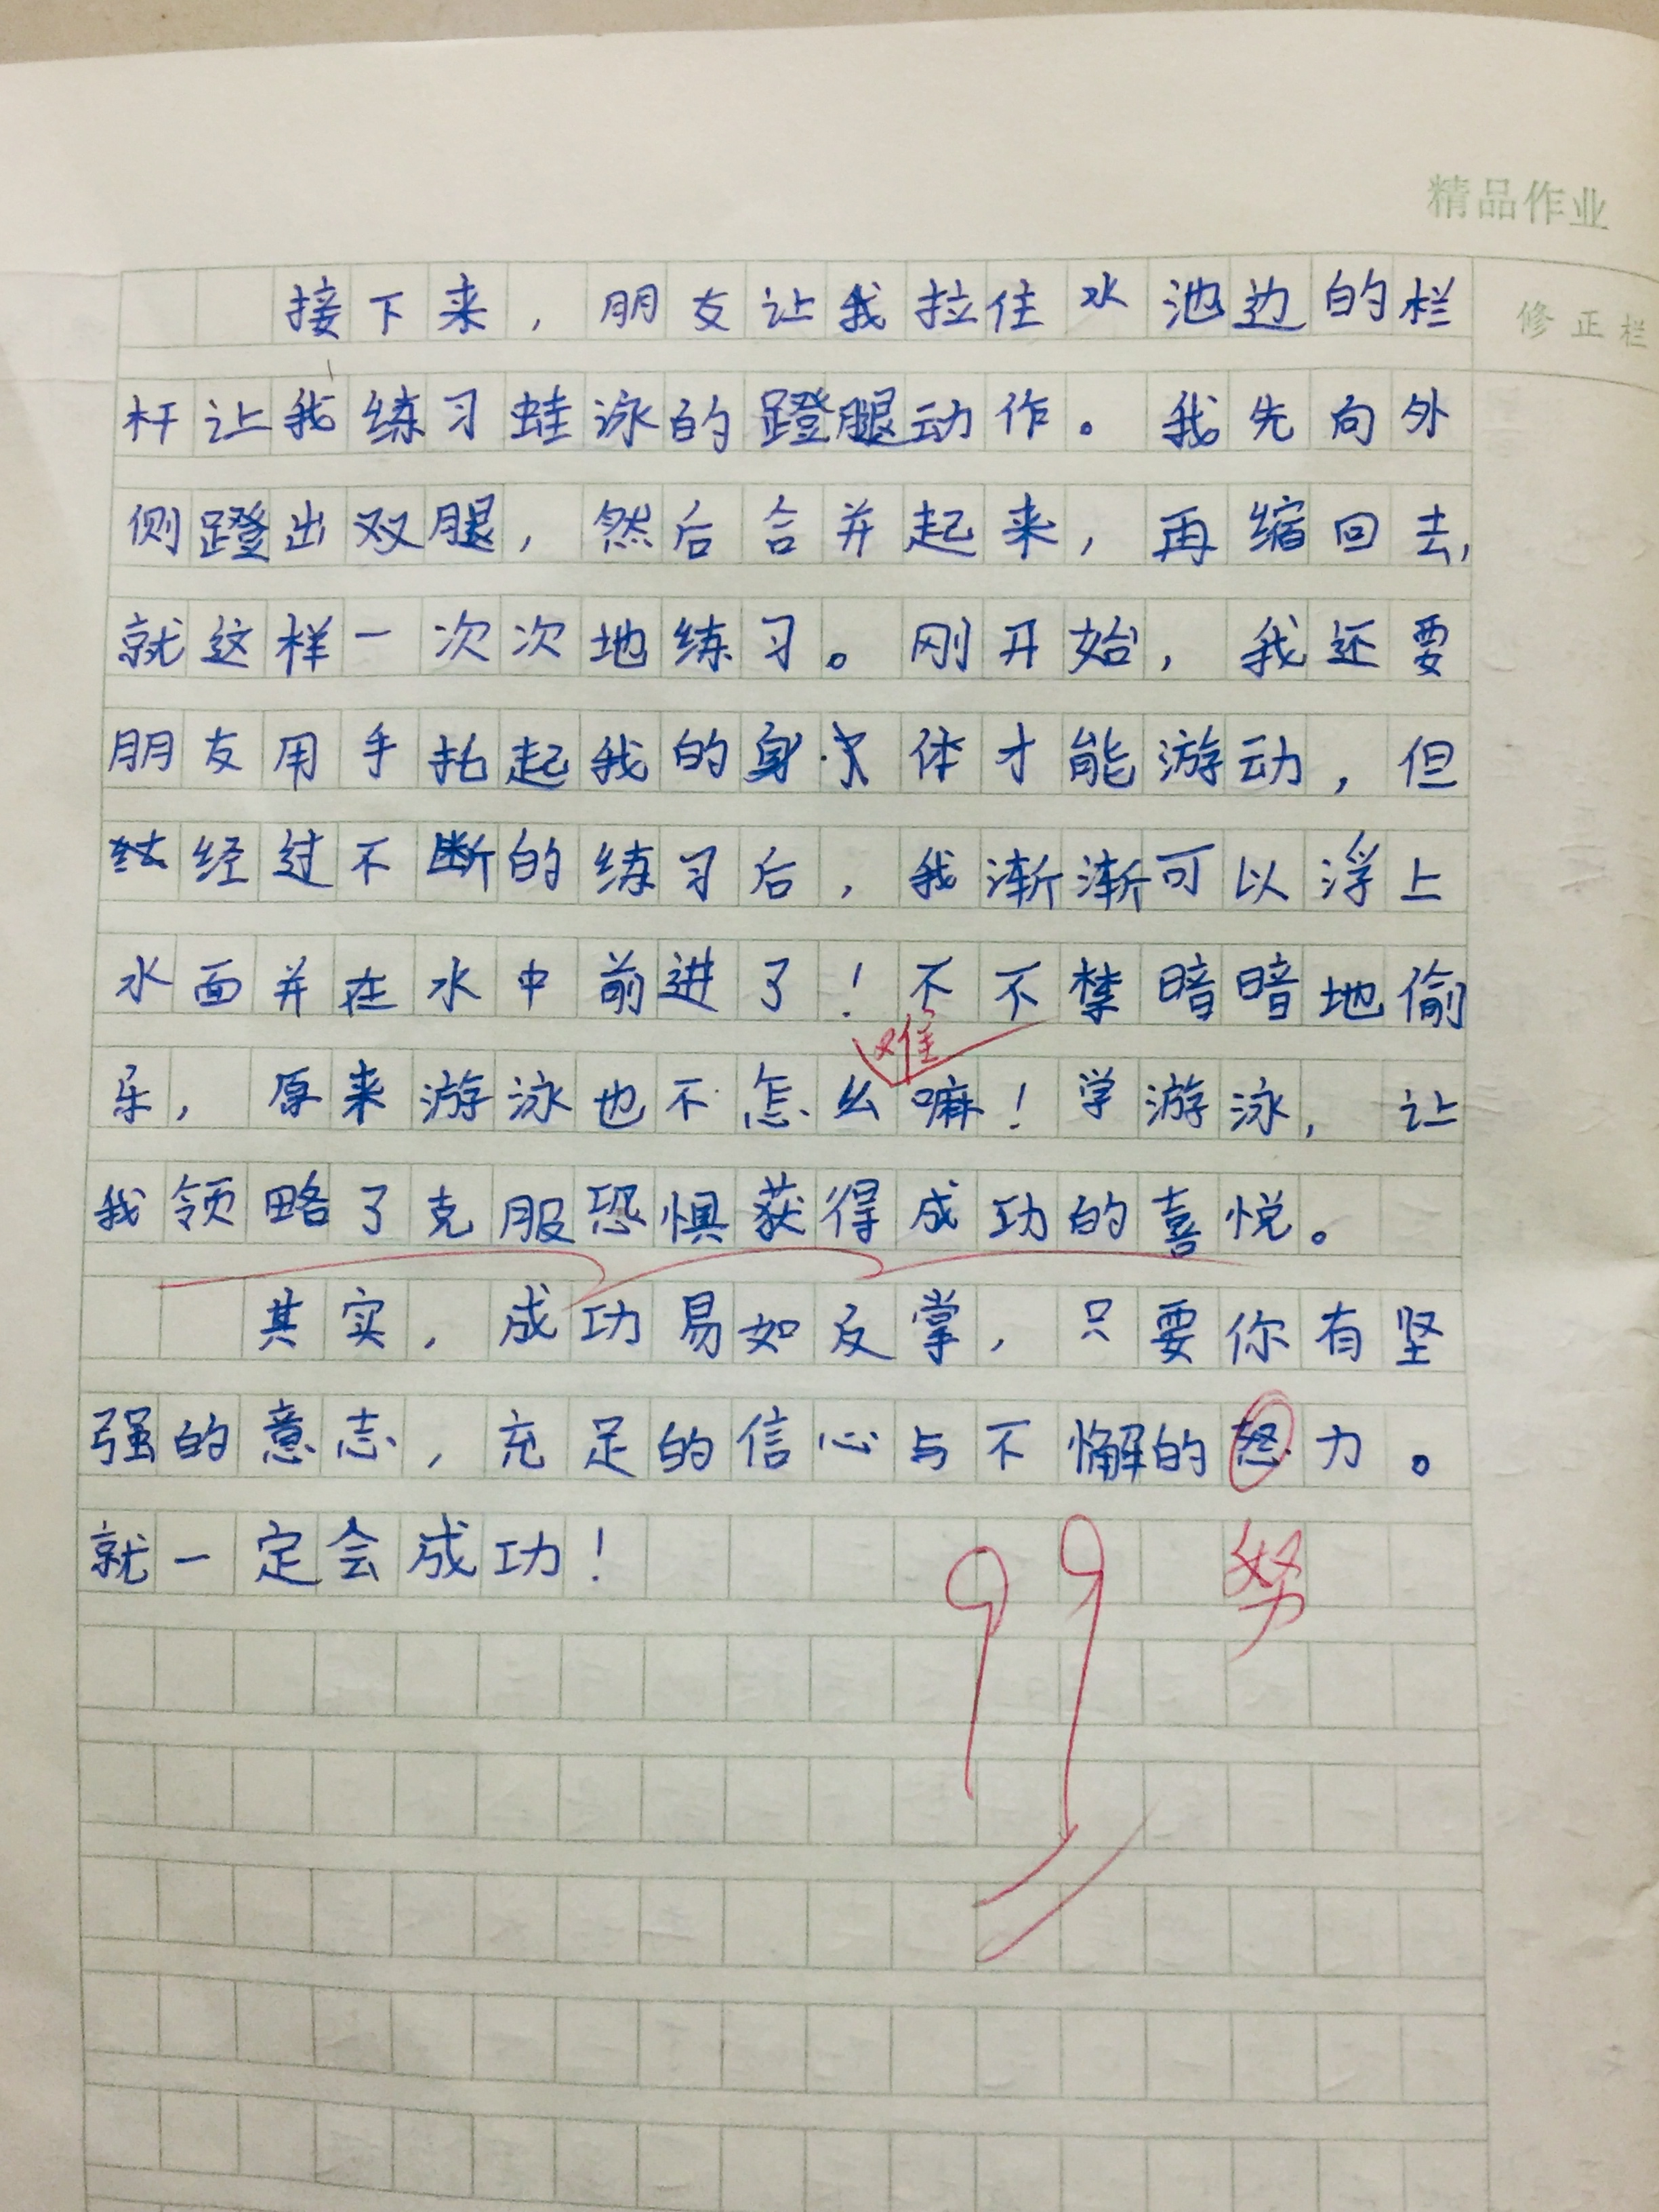 精品作业
修正栏
接下来，朋友让我拉住水池边的栏
杆让我练习蛙泳的蹬腿动作。我先向外
侧蹬出双腿，然后合并起来，再缩回去，
就这样一次次地练习。刚开始，我还要
朋友用手托起我的身体才能游动，但
经过不断的练习后，我渐渐可以浮上
水面并在水中前进了！不不禁暗暗地偷
难
乐，原来游泳也不怎么嘛！学游泳，让
我领略了克服恐惧获得成功的喜悦。
其实，成功易如反掌，只要你有坚
强的意志，充足的信心与不懈的怒力。
就一定会成功！
努
99